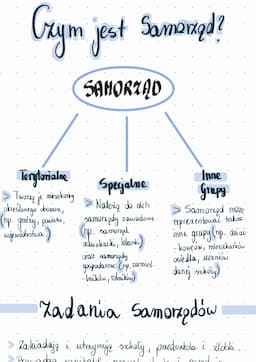 Czym jest Samorząd?
SAMORZĄD
Terytorialne
> Tworzą je mieszkańcy
określonego obszaru,
(np. gminy, powiatu,
województwa.)
Specjalne
> Należą do nich
samorządy zawodowe
(np. samorząd
adwokacki, lekarski)
oraz samorządy
gospodarcze (np.
Inne
Grupy
> Samorząd może
reprezentować także
inne grupy (np. dział-
-kowców, mieszkańców
osiedla, uczniów
danej szkoły)
Zadania Samorządów
> Zakładają i utrzymują szkoły, przedszkola i żłobki.